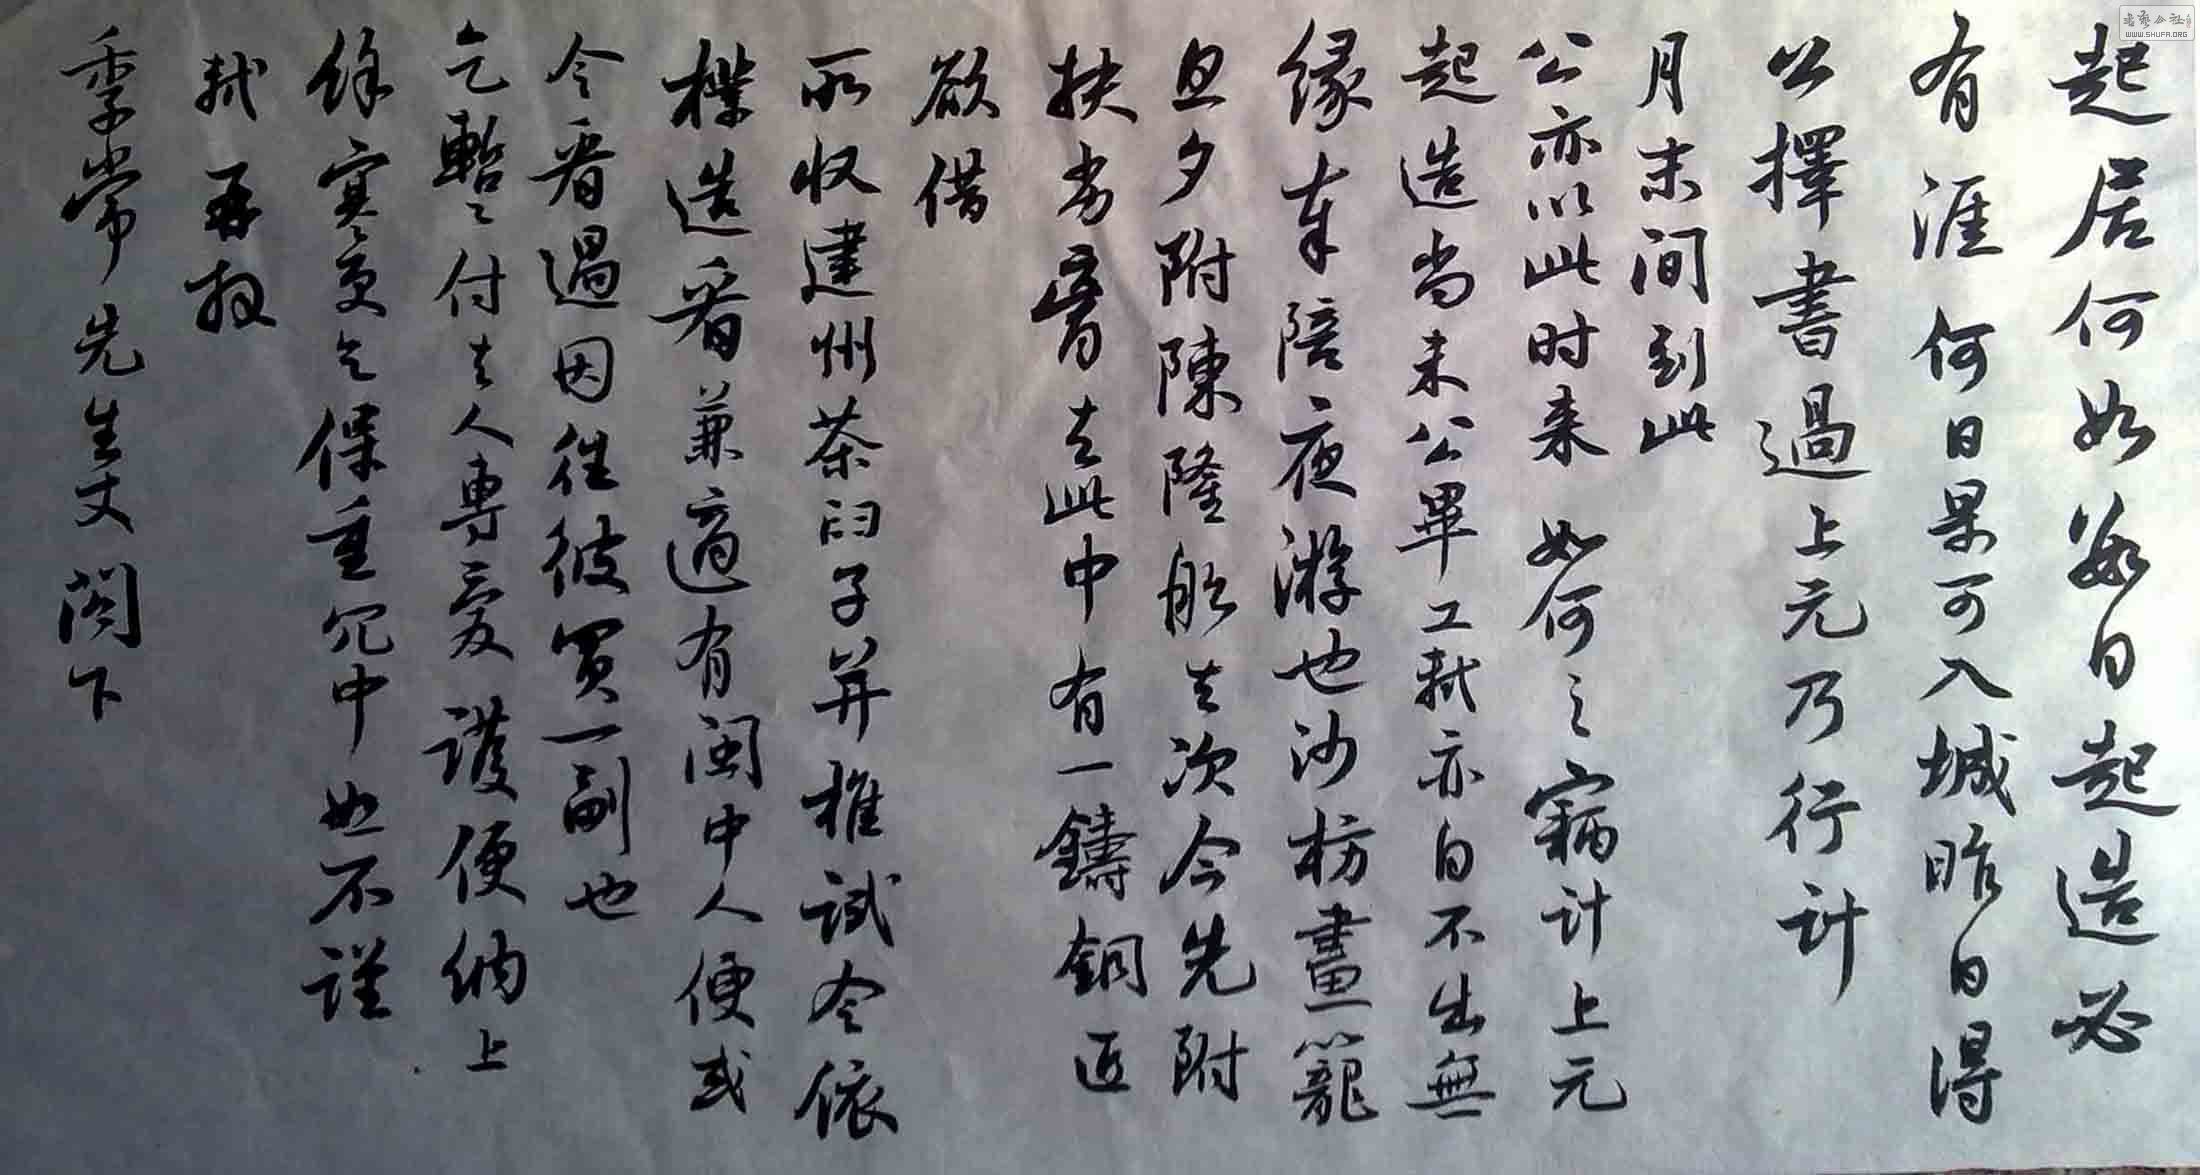 起居何如數日起造必
有涯何日果可入城昨日得
公擇書過上元乃行計
月末间到此
公亦以此时来如何〻竊计上元
起造尚未公畢工軾亦自不出無
緣奉陪夜游也沙枋畫籠
旦夕附陳隆船去次今先附
扶劣膏去此中有一鑄銅匠
欲借
所收建州茶臼子并椎試令依
樣造看兼適有閩中人便或
令看過因往彼買一副也
乞暫〻付去人專愛護便納上
餘寒更乞保重冗中恕不謹
軾再拜
季常先生丈閣下
书艺公社
WWW.SHUFA.ORG